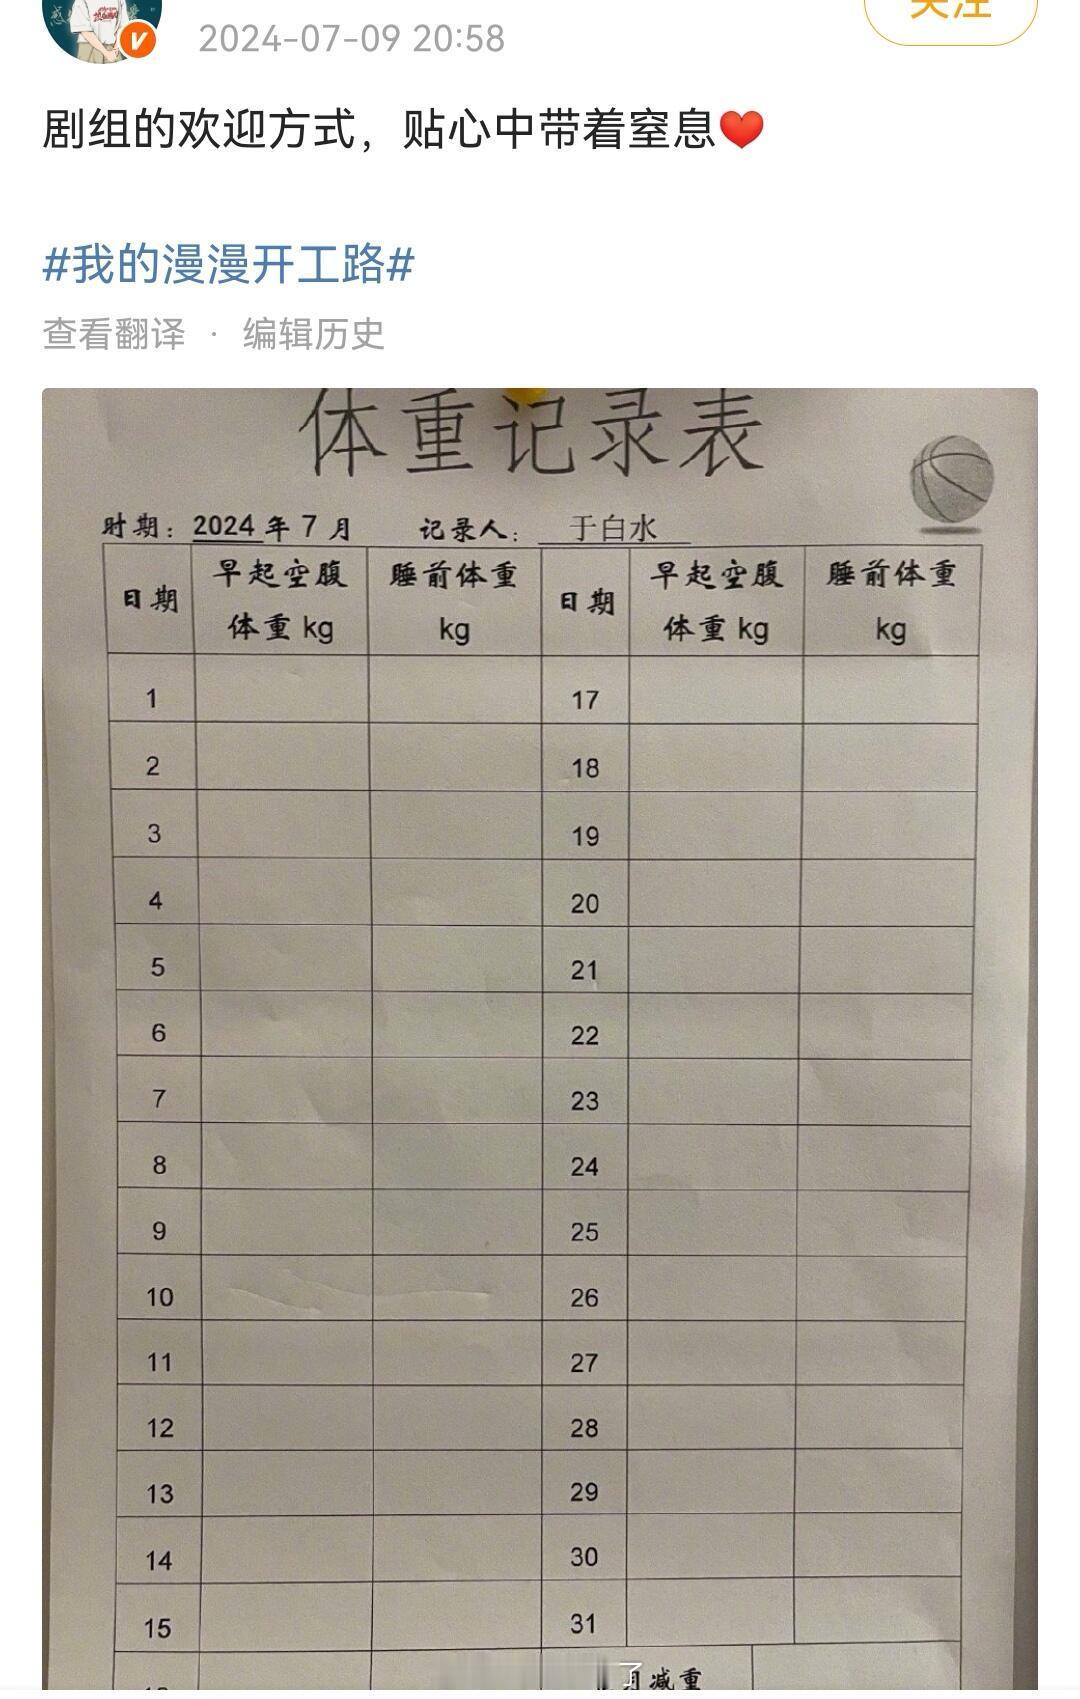 关注
2024-07-09 20:58
剧组的欢迎方式，贴心中带着窒息❤️
#我的漫漫开工路#
查看翻译 · 编辑历史
体重记录表
时期：2024年7月 记录人：于白水
日期 早起空腹体重kg 睡前体重kg 日期 早起空腹体重kg 睡前体重kg
1 17
2 18
3 19
4 20
5 21
6 22
7 23
8 24
9 25
10 26
11 27
12 28
13 29
14 30
15 31
月减重
了